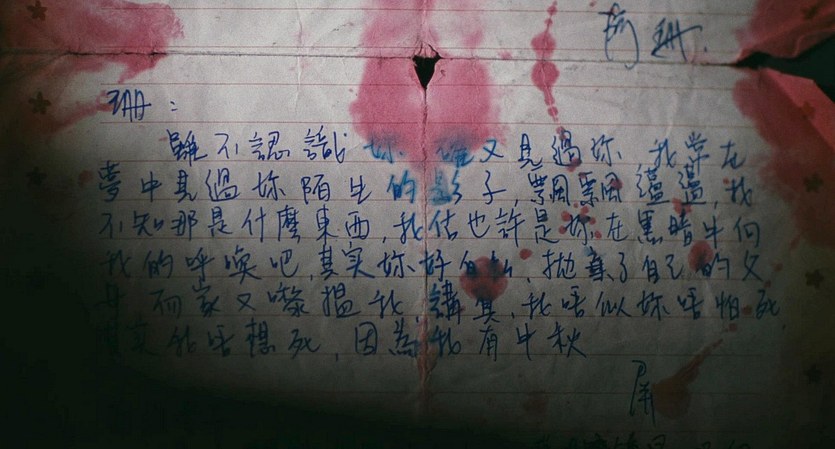 阿珊.
珊：
雖不認識妳 確又見過妳 我常在
夢中見過妳陌生的影子,飄飄蕩蕩,我
不知那是什麼東西,我估也許是妳在黑暗中向
我的呼喚吧,其實妳好自私,拋棄了自己的父
母 而家又嚟搵我,講真,我唔似妳唔怕死,
其實我唔想死,因為我有中秋
屏